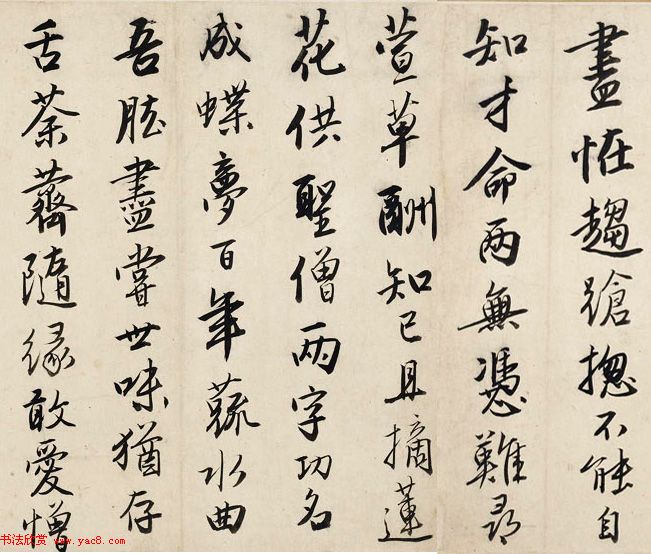 盡恠趨蹌揔不能自
知才命兩無憑難尋
萱草酬知已且摘蓮
花供聖僧兩字功名
成蝶夢百年蔬水曲
吾肱盡嘗世味猶存
舌荼薺隨緣敢愛憎
书法欣赏 www.yac8.com